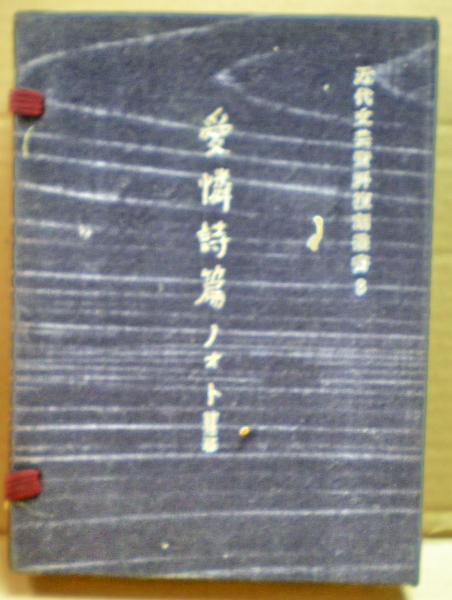 近代文芸資料複刻叢書 8
愛憐詩篇ノオト